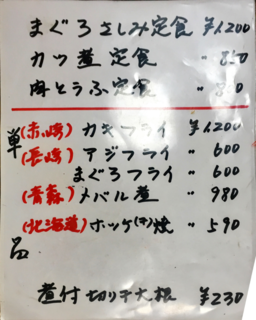 まぐろさしみ定食 ¥1200
カツ煮定食 〃 850
肉とうふ定食 〃 850
単品
(赤崎) カキフライ ¥1200
(長崎) アジフライ 〃 600
まぐろフライ 〃 600
(青森) メバル煮 〃 980
(北海道) ホッケ(半)焼 〃 590
煮付 切り干大根 ¥230